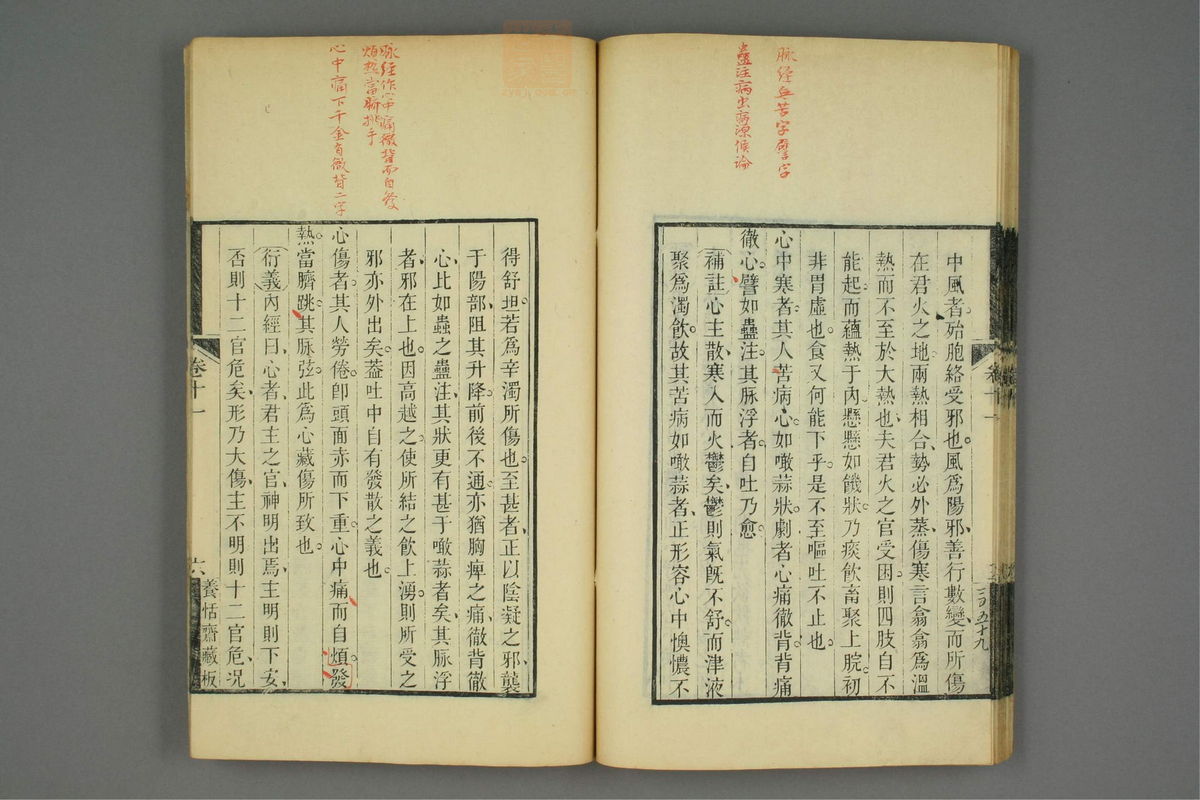 脉經無苦字譬字
蠱注病出病源候論
中風者殆胞絡受邪也風爲陽邪善行數變而所傷
在君火之地兩熱相合勢必外蒸傷寒言翕翕爲溫
熱而不至於大熱也夫君火之官受困則四肢自不
能起而蘊熱于內懸懸如饑狀乃痰飲畜聚上脘初
非胃虛也食又何能下乎是不至嘔吐不止也
心中寒者其人苦病心如噉蒜狀劇者心痛徹背背痛
徹心譬如蠱注其脉浮者自吐乃愈
補註心主散寒入而火鬱矣鬱則氣旣不舒而津液
聚爲濁飲故其苦病如噉蒜者正形容心中懊憹不
卷十一
三百五十九
脉經作心中痛徹背而自發
煩熱當臍挑手
心中痛下千金有徹背二字
得舒坦若爲辛濁所傷也至甚者正以陰凝之邪襲
于陽部阻其升降前後不通亦猶胸痺之痛徹背徹
心比如蠱之蠱注其狀更有甚于噉蒜者矣其脉浮
者邪在上也因高越之使所結之飲上湧則所受之
邪亦外出矣葢吐中自有發散之義也
心傷者其人勞倦卽頭面赤而下重心中痛而自煩發
熱當臍跳其脉弦此爲心藏傷所致也
衍義內經曰心者君主之官神明出焉主明則下安
否則十二官危矣形乃大傷主不明則十二官危况
卷十一
六
養恬齋藏板